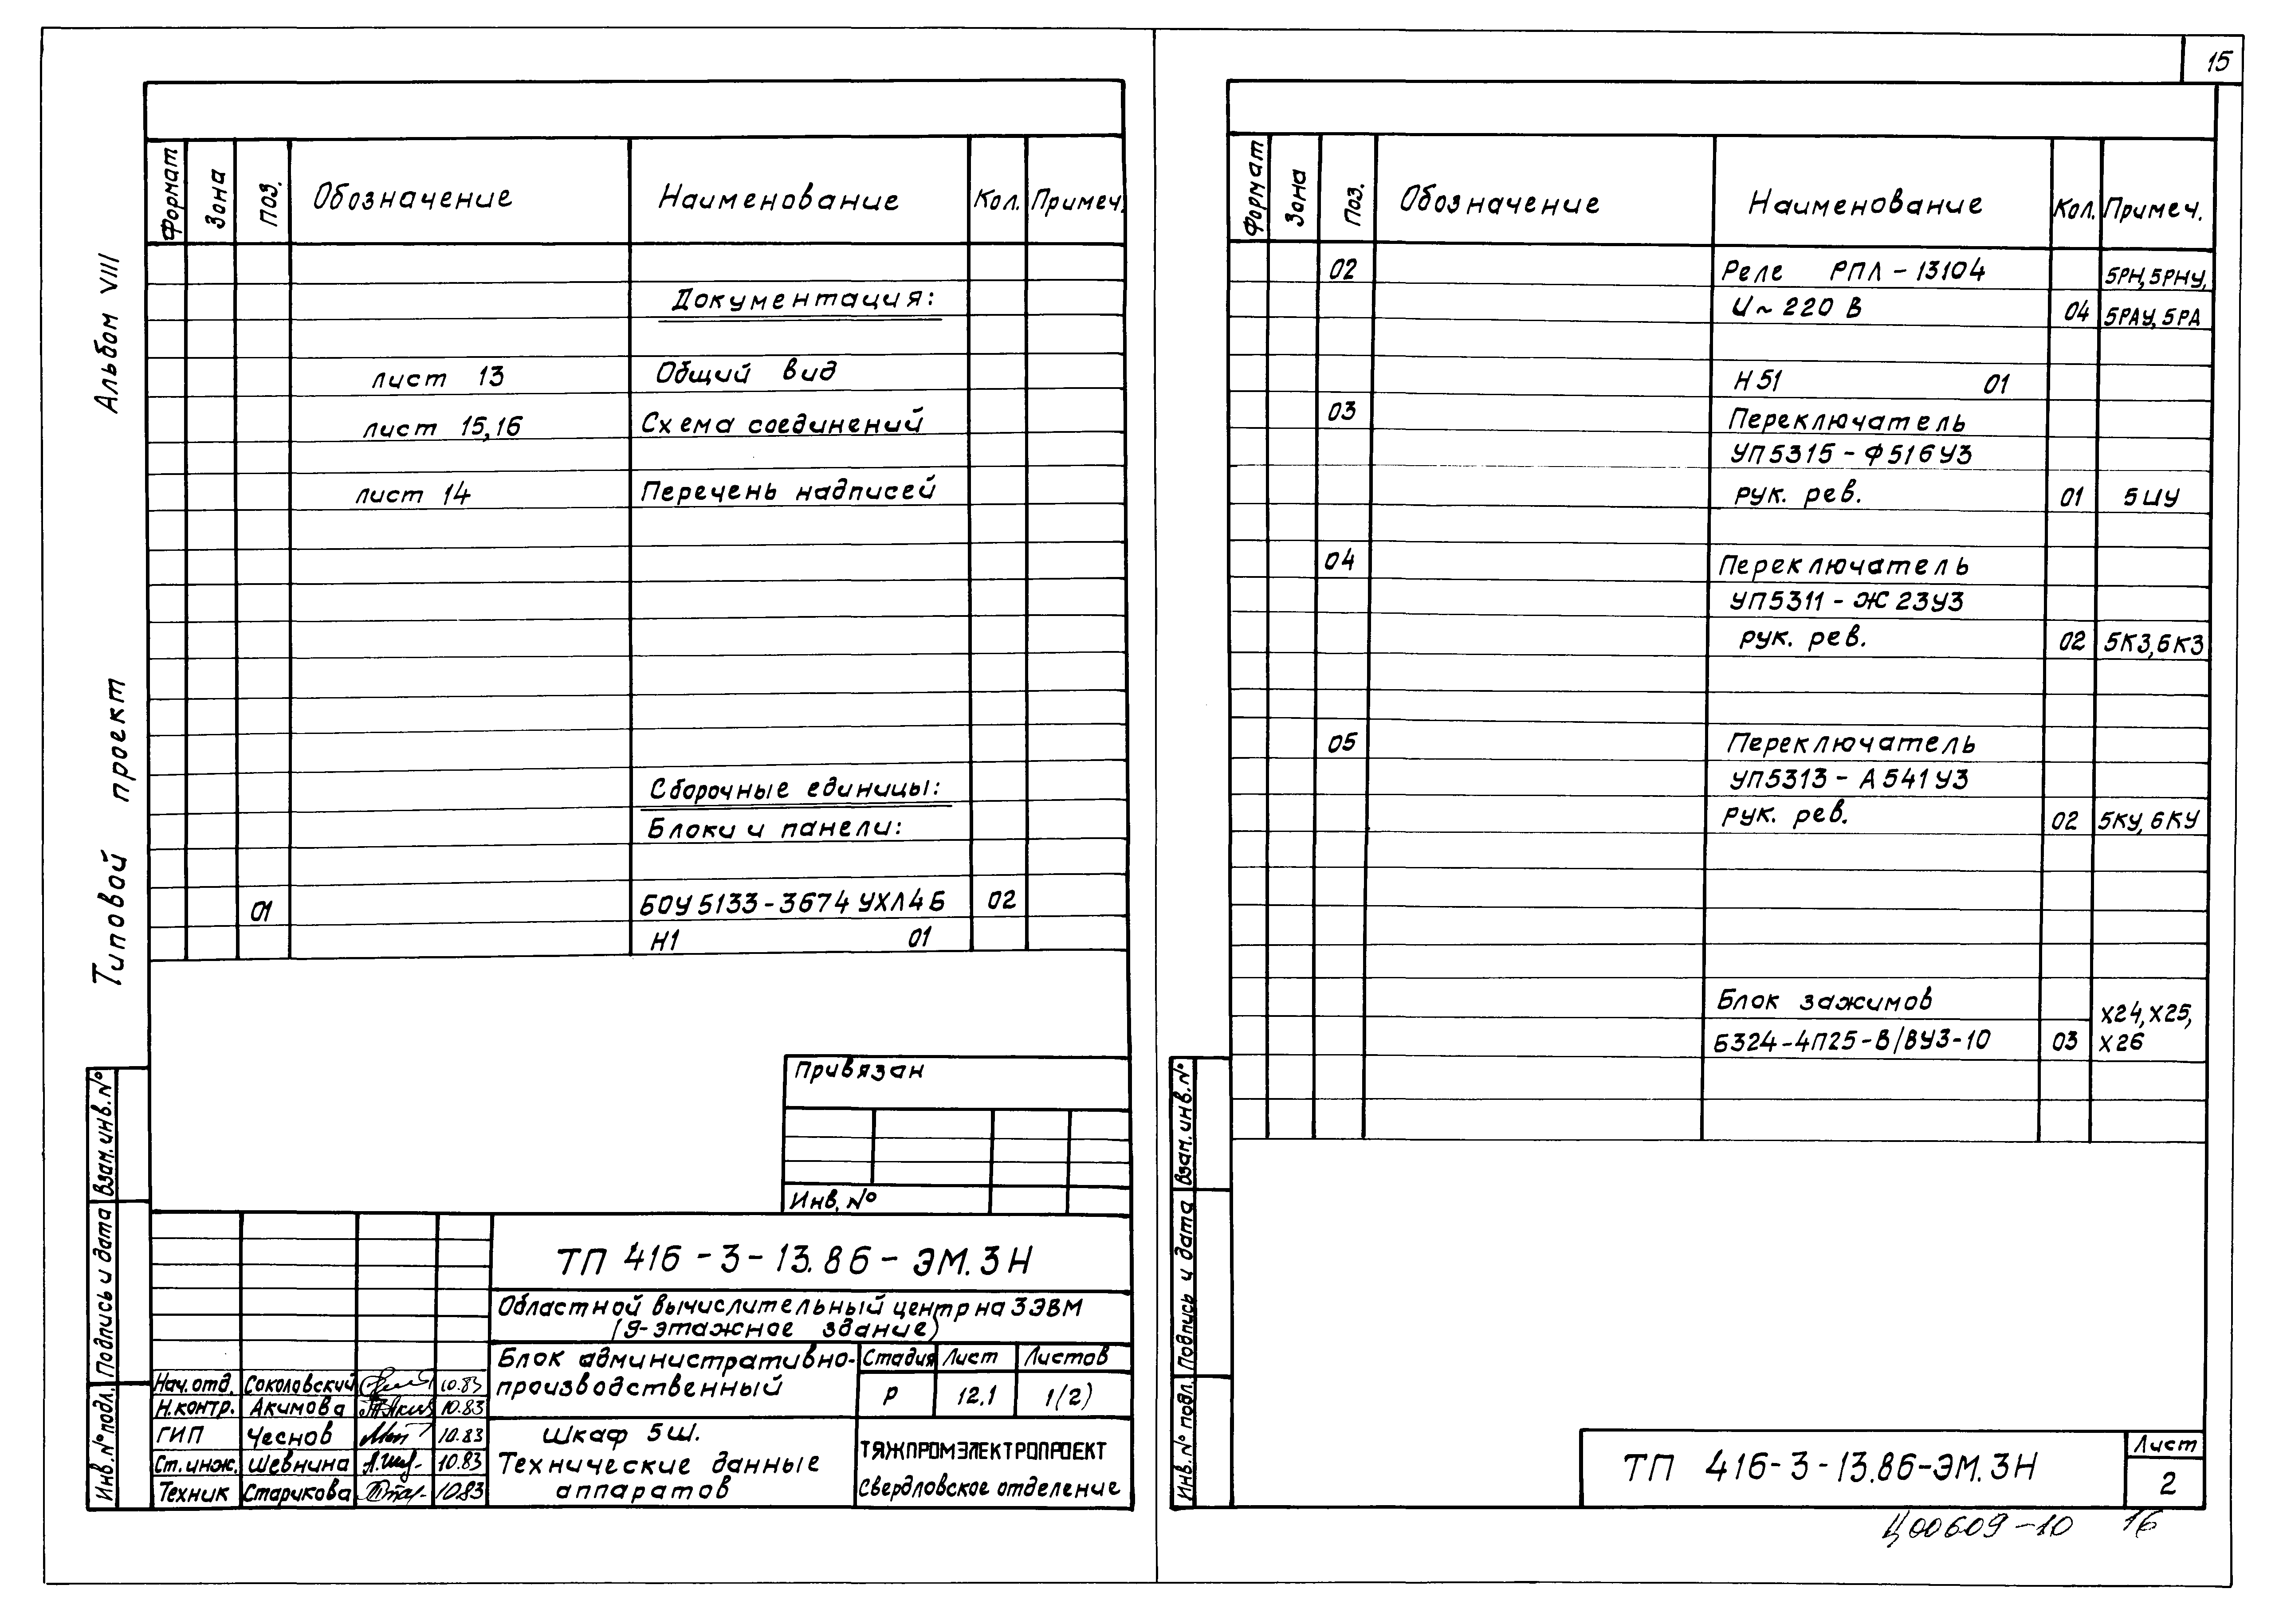 15
Альбом VIII
Типовой проект
Формат Зона Поз. Обозначение Наименование Кол. Примеч.
Документация:
лист 13 Общий вид
лист 15,16 Схема соединений
лист 14 Перечень надписей
Сборочные единицы:
Блоки и панели:
01 БОУ 5133-3674 УХЛ4Б 02
Н1 01
Привязан
Инв. №
Взам. инв. №
Подпись и дата
Инв. № подл.
ТП 416-3-13.86-ЭМ.ЗН
Областной вычислительный центр на 3 ЭВМ
(9-этажное здание)
Блок административно-
производственный
Стадия Лист Листов
Р 12.1 1(2)
Нач. отд. Соколовский 10.83
Н. контр. Акимова 10.83
ГИП Чеснов 10.83
Ст. инж. Шевнина 10.83
Техник Старикова 10.83
Шкаф 5Ш.
Технические данные
аппаратов
ТЯЖПРОМЭЛЕКТРОПРОЕКТ
Свердловское отделение
Формат Зона Поз. Обозначение Наименование Кол. Примеч.
02 Реле РПЛ-13104 5РН, 5РНУ,
U~220 В 04 5РАУ, 5РА
Н51 01
03 Переключатель
УП5315-Ф516У3
рук. рев. 01 5ИУ
04 Переключатель
УП5311-Ж23У3
рук. рев. 02 5КЗ, 6КЗ
05 Переключатель
УП5313-А541У3
рук. рев. 02 5КУ, 6КУ
Блок зажимов Х24, Х25,
Б324-4П25-В/ВУ3-10 03 Х26
Взам. инв. №
Подпись и дата
Инв. № подл.
ТП 416-3-13.86-ЭМ.ЗН
Лист
2
Ц00609-10 16